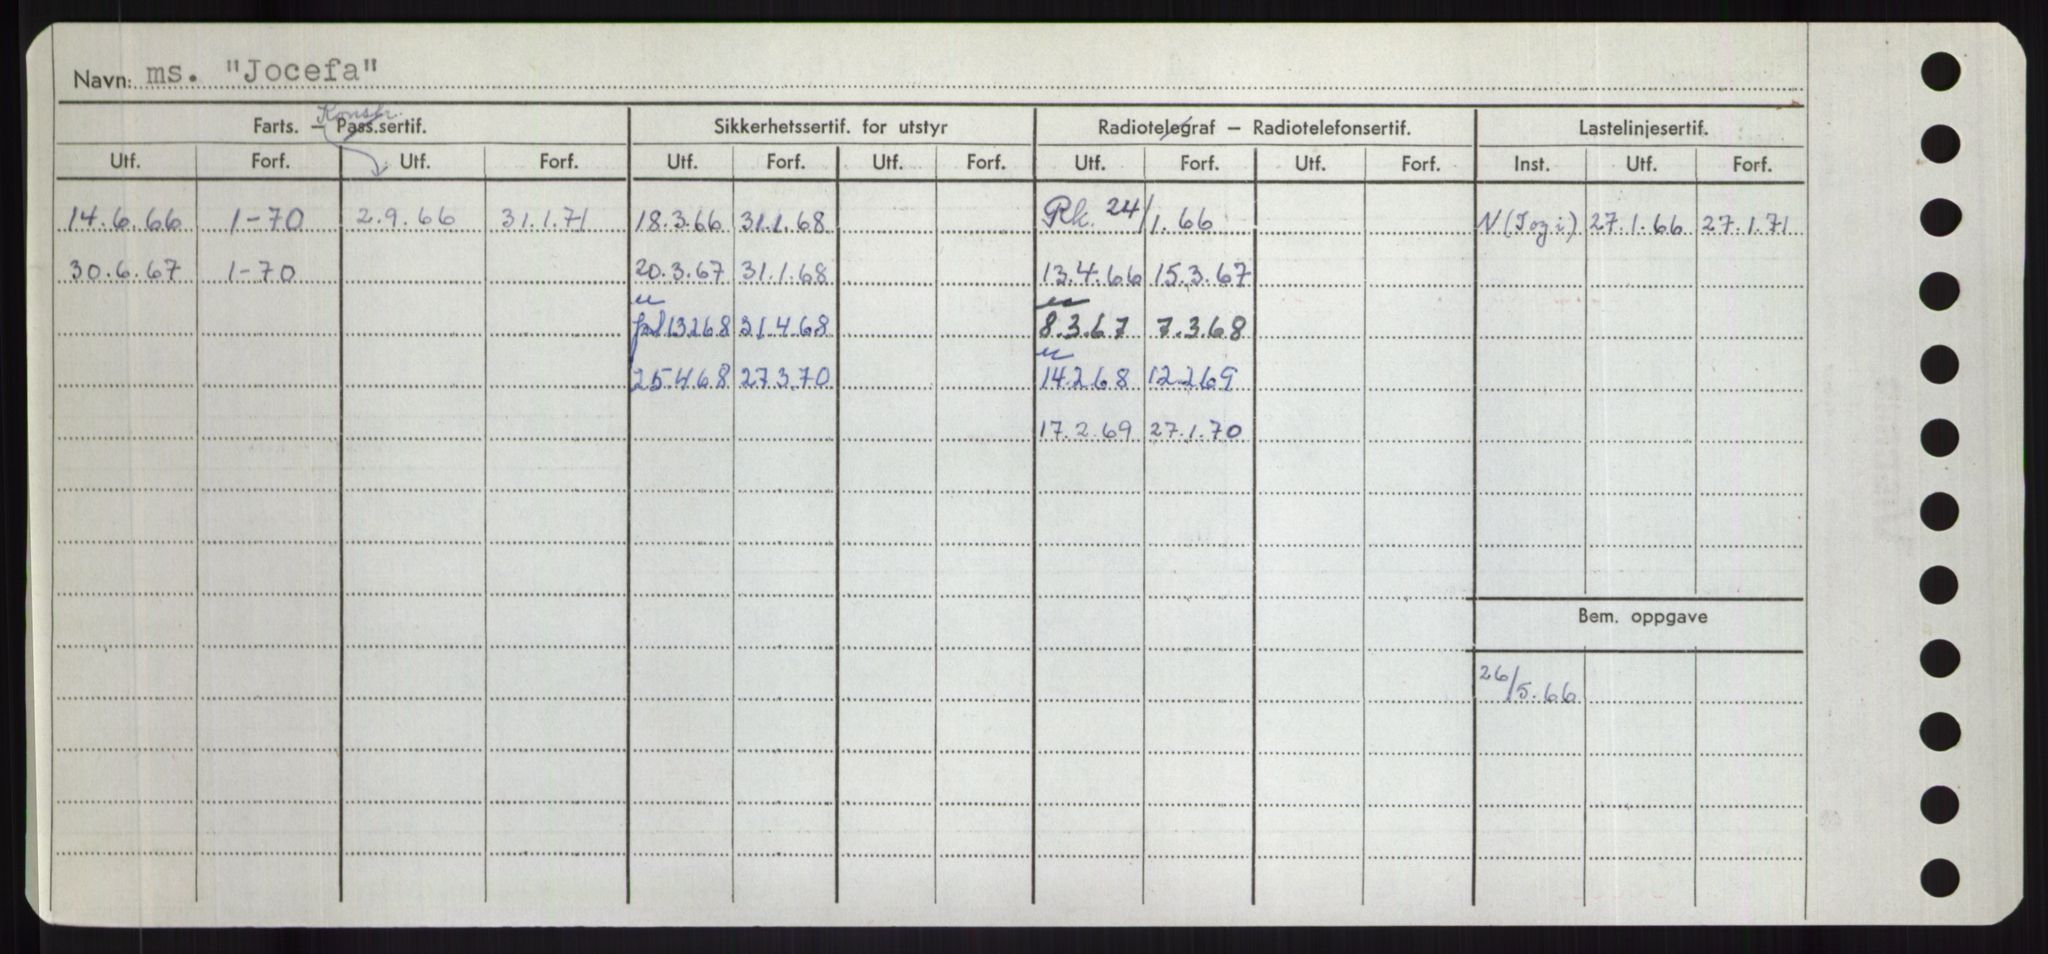 Navn: ms. "Jocefa"
Konstr.
Farts. — Pass.sertif. Sikkerhetssertif. for utstyr Radiotelegraf — Radiotelefonsertif. Lastelinjesertif.
Utf. Forf. Utf. Forf. Utf. Forf. Utf. Forf. Utf. Forf. Utf. Forf. Inst. Utf. Forf.
14.6.66 1-70 2.9.66 31.1.71 18.3.66 31.1.68 Rk. 24/1.66 N (Togi) 27.1.66 27.1.71
30.6.67 1-70 20.3.67 31.1.68 13.4.66 15.3.67
13268 31.4.68 8.3.67 7.3.68
25.4.68 27.3.70 14.2.68 12.2.69
17.2.69 27.1.70
Bem. oppgave
26/5.66